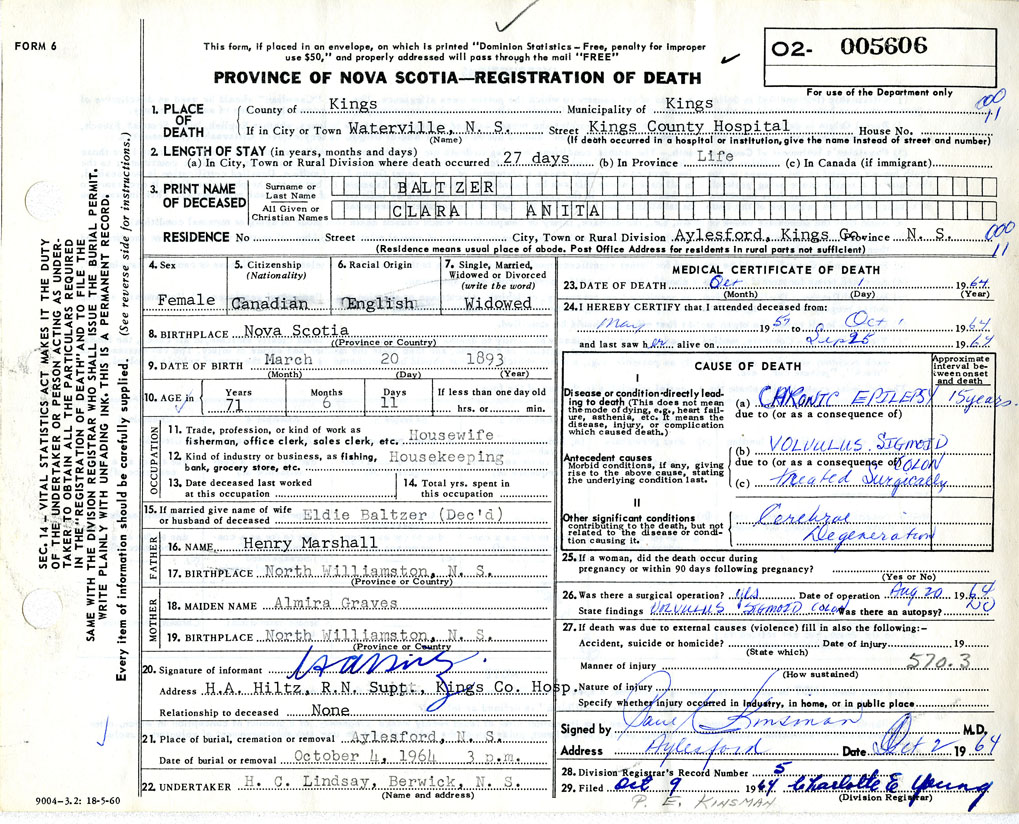 FORM 6
This form, if placed in an envelope, on which is printed "Dominion Statistics – Free, penalty for improper
use $50," and properly addressed will pass through the mail "FREE"
O2- 005606
For use of the Department only
PROVINCE OF NOVA SCOTIA—REGISTRATION OF DEATH
000
11
1. PLACE OF DEATH County of Kings Municipality of Kings
If in City or Town Waterville, N. S. Street Kings County Hospital House No.
(Name) (If death occurred in a hospital or institution, give the name instead of street and number)
2. LENGTH OF STAY (in years, months and days)
(a) In City, Town or Rural Division where death occurred 27 days (b) In Province Life (c) In Canada (if immigrant)
3. PRINT NAME OF DECEASED
Surname or Last Name BALTZER
All Given or Christian Names CLARA ANITA
RESIDENCE No Street City, Town or Rural Division Aylesford, Kings Co. Province N. S.
000
11
(Residence means usual place of abode. Post Office Address for residents in rural parts not sufficient)
4. Sex Female
5. Citizenship (Nationality) Canadian
6. Racial Origin English
7. Single, Married, Widowed or Divorced (write the word) Widowed
8. BIRTHPLACE Nova Scotia
(Province or Country)
9. DATE OF BIRTH March 20 1893
(Month) (Day) (Year)
10. AGE in Years 71 Months 6 Days 11 If less than one day old
hrs. or min.
OCCUPATION
11. Trade, profession, or kind of work as
fisherman, office clerk, sales clerk, etc. Housewife
12. Kind of industry or business, as fishing,
bank, grocery store, etc. Housekeeping
13. Date deceased last worked
at this occupation
14. Total yrs. spent in
this occupation
15. If married give name of wife
or husband of deceased Eldie Baltzer (Dec'd)
FATHER
16. NAME Henry Marshall
17. BIRTHPLACE North Williamston, N. S.
(Province or Country)
MOTHER
18. MAIDEN NAME Almira Graves
19. BIRTHPLACE North Williamston, N. S.
(Province or Country)
20. Signature of informant
Address H.A. Hiltz, R.N. Supt., Kings Co. Hosp.
Relationship to deceased None
21. Place of burial, cremation or removal Aylesford, N. S.
Date of burial or removal October 4, 1964 3 p.m.
22. UNDERTAKER H. C. Lindsay, Berwick, N. S.
(Name and address)
MEDICAL CERTIFICATE OF DEATH
23. DATE OF DEATH Oct 1 1964
(Month) (Day) (Year)
24. I HEREBY CERTIFY that I attended deceased from:
May 1957 to Oct 1 1964
and last saw her alive on Sep 25 1964
CAUSE OF DEATH
Approximate interval between onset and death
I
Disease or condition directly leading to death (This does not mean
the mode of dying, e.g., heart failure, asthenia, etc. It means the
disease, injury, or complication
which caused death.)
(a) CHRONIC EPILEPSY 15 years.
due to (or as a consequence of)
Antecedent causes
Morbid conditions, if any, giving
rise to the above cause, stating
the underlying condition last.
(b) VOLVULUS SIGMOID
due to (or as a consequence of) COLON
(c) treated Surgically
II
Other significant conditions
contributing to the death, but not
related to the disease or condition causing it.
Cerebral
Degeneration
25. If a woman, did the death occur during
pregnancy or within 90 days following pregnancy?
(Yes or No)
26. Was there a surgical operation? yes Date of operation Aug 20 1964
State findings VOLVULUS SIGMOID COLON Was there an autopsy? NO
27. If death was due to external causes (violence) fill in also the following:–
Accident, suicide or homicide? Date of injury 19
(State which)
Manner of injury 570.3
(How sustained)
Nature of injury
Specify whether injury occurred in Industry, in home, or in public place
Signed by Paul Kinsman M.D.
Address Aylesford Date Oct 2 1964
28. Division Registrar's Record Number 5
29. Filed Oct 9 1964 Charlotte E Young
(Division Registrar)
P. E. KINSMAN
9004-3.2: 18-5-60
SEC. 14 – VITAL STATISTICS ACT MAKES IT THE DUTY
OF THE UNDERTAKER OR PERSON ACTING AS UNDER-
TAKER TO OBTAIN ALL THE PARTICULARS REQUIRED
IN THE "REGISTRATION OF DEATH" AND TO FILE THE
SAME WITH THE DIVISION REGISTRAR WHO SHALL ISSUE THE BURIAL PERMIT.
WRITE PLAINLY WITH UNFADING INK. THIS IS A PERMANENT RECORD.
Every item of information should be carefully supplied. (See reverse side for instructions.)